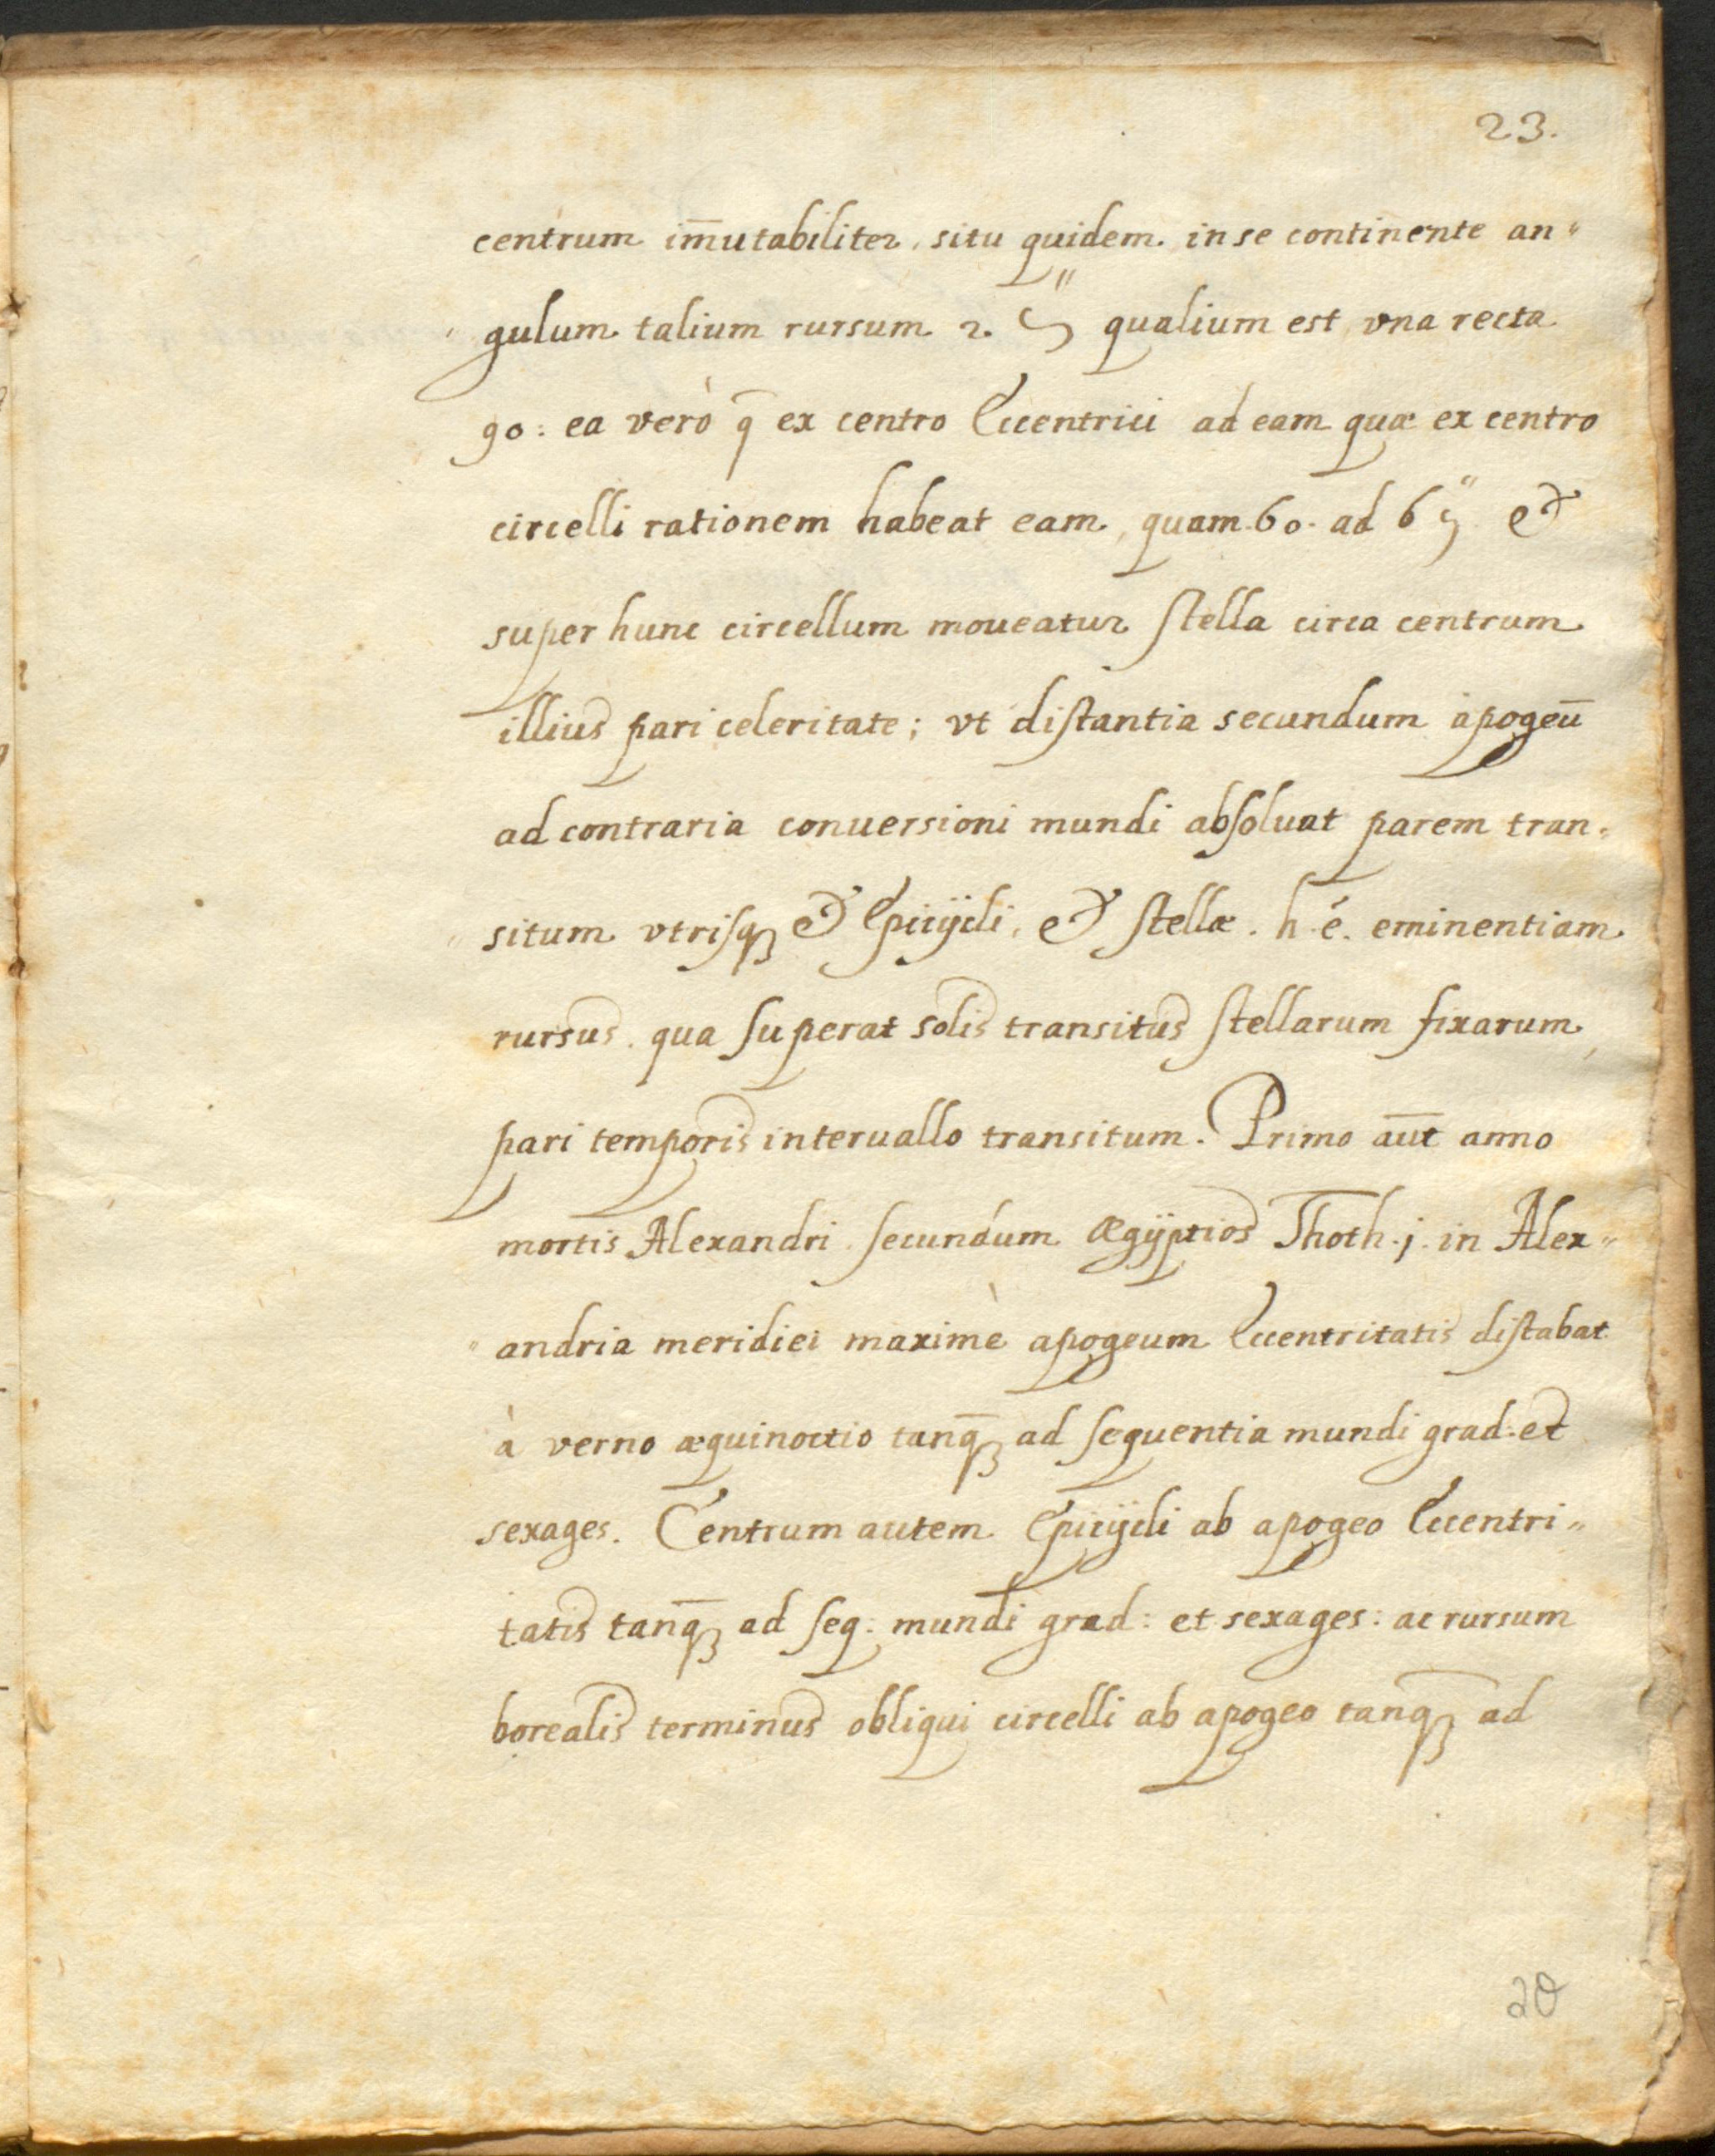 23.
centrum im̄utabiliter, situ quidem. in se continente an"
"gulum talium rursum 2. ϛ" qualium est vna recta
90: ea verò q̄ ex centro Eccentrici ad eam quæ ex centro
circelli rationem habeat eam, quam 60. ad 6 ϛ" &
super hunc circellum moueatur ſtella circa centrum
illius pari celeritate; vt diſtantia secundum apogeū
ad contraria conuersioni mundi abſoluat parem tran"
"situm vtriſqꝫ & Epicÿcli, & ſtellæ. h. é. eminentiam
rursus. qua ſuperat solis transitus ſtellarum fixarum
pari temporis interuallo transitum. Primo aut̄ anno
mortis Alexandri ſecundum Ægÿptios Thoth. j. in Alex"
"andria meridiei maximè apogeum Eccentritatis diſtabat
à verno æquinoctio tanq̄ꝫ ad ſequentia mundi grad: et
sexages. Centrum autem Epicÿcli ab apogeo Eccentri"
tatis tanq̄ꝫ ad ſeq: mundi grad: et sexages: ac rursum
borealis terminus obliqui circelli ab apogeo tanq̄ꝫ ad
20